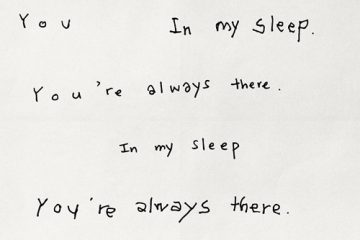 You In my sleep.
You're always there.
In my sleep
You're always there.